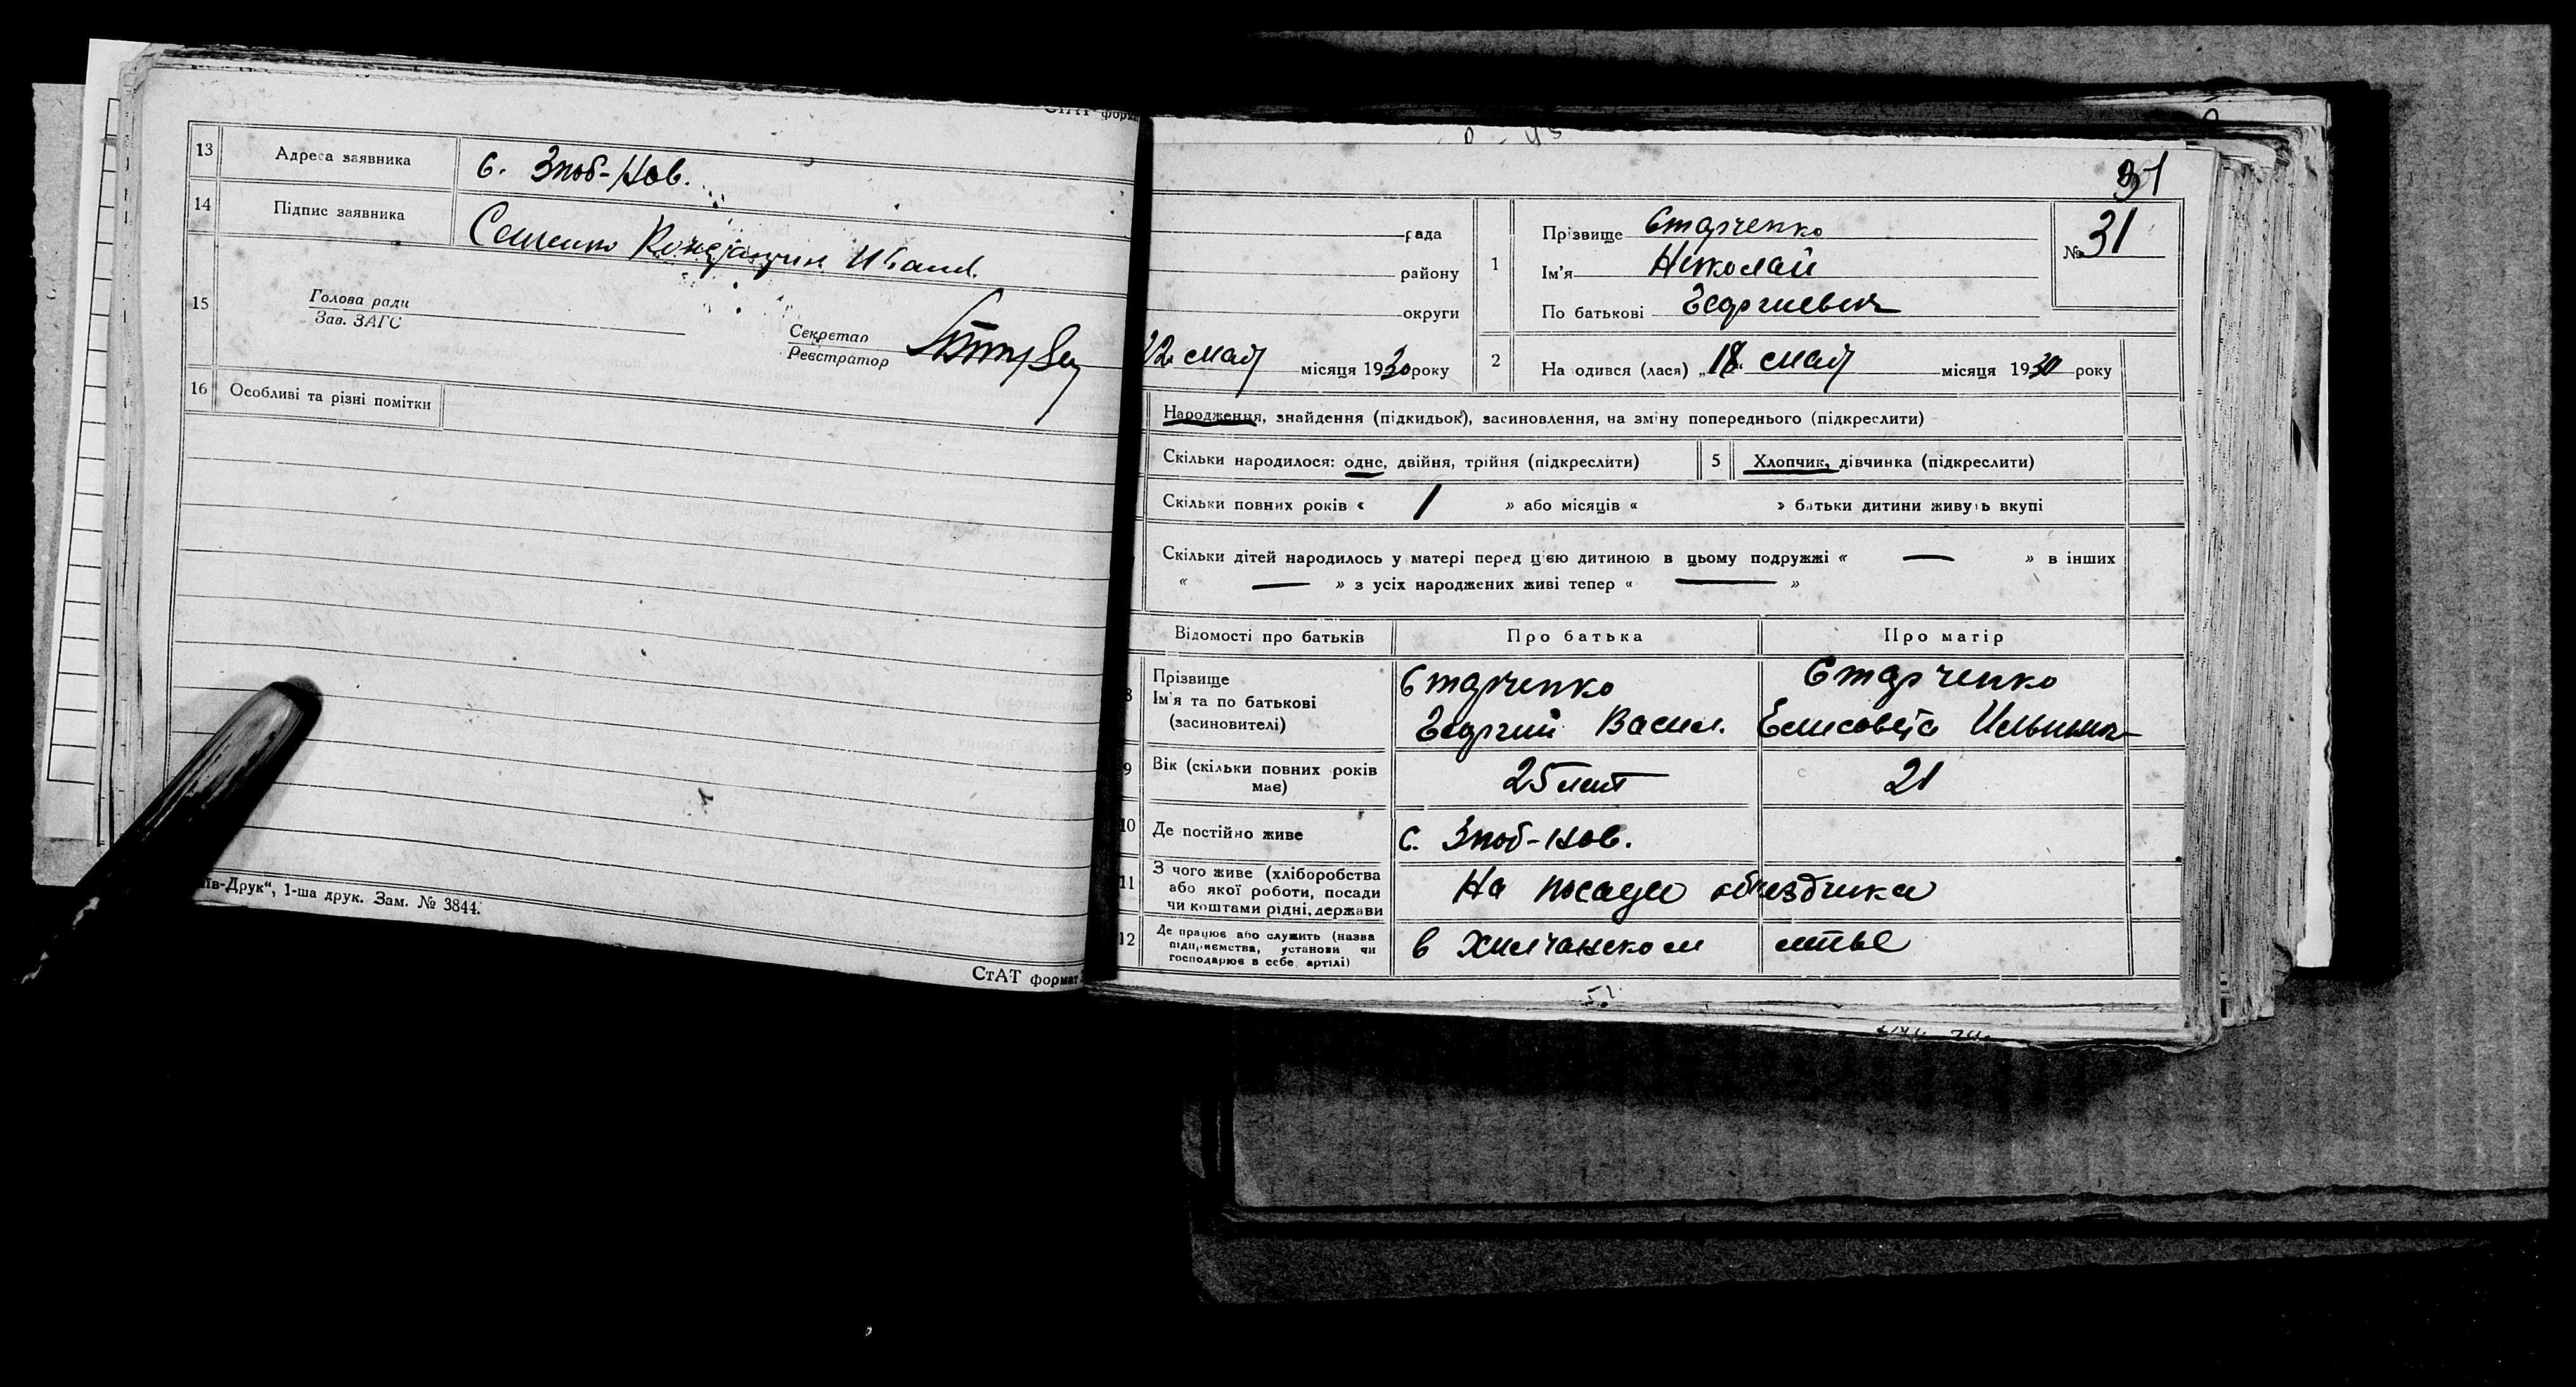 СтАТ форм
13 Адреса заявника с. Зноб-Нов.
14 Підпис заявника Сеченко Иванов.
15 Голова ради
Зав. ЗАГС
Секретар
Реєстратор
16 Особливі та різні помітки
їв-Друк“, 1-ша друк. Зам. № 3844.
СтАТ формат
31
рада
району
округи
22 мая місяця 1930 року
1 Прізвище Старченко
Ім'я Николай
По батькові Георгиевич
№ 31
2 На одився (лася) „18“ мая місяця 1930 року
Народження, знайдення (підкидьок), засиновлення, на зміну попереднього (підкреслити)
Скільки народилося: одне, двійня, трійня (підкреслити) 5 Хлопчик, дівчинка (підкреслити)
Скільки повних років « 1 » або місяців « » батьки дитини живуть вкупі
Скільки дітей народилось у матері перед цією дитиною в цьому подружжі « — » в інших
« — » з усіх народжених живі тепер « — »
Відомості про батьків Про батька Про матір
8 Прізвище
Ім'я та по батькові
(засиновителі)
Старченко
Георгий Васил.
Старченко
Елисовета Ильинич
9 Вік (скільки повних років
має)
25 лет 21
10 Де постійно живе с. Зноб-Нов.
11 З чого живе (хліборобства
або якої роботи, посади
чи коштами рідні, держави
На посади объездчика
12 Де працює або служить (назва
підприємства, установи чи
господарює в себе, артілі)
в Хилчанском